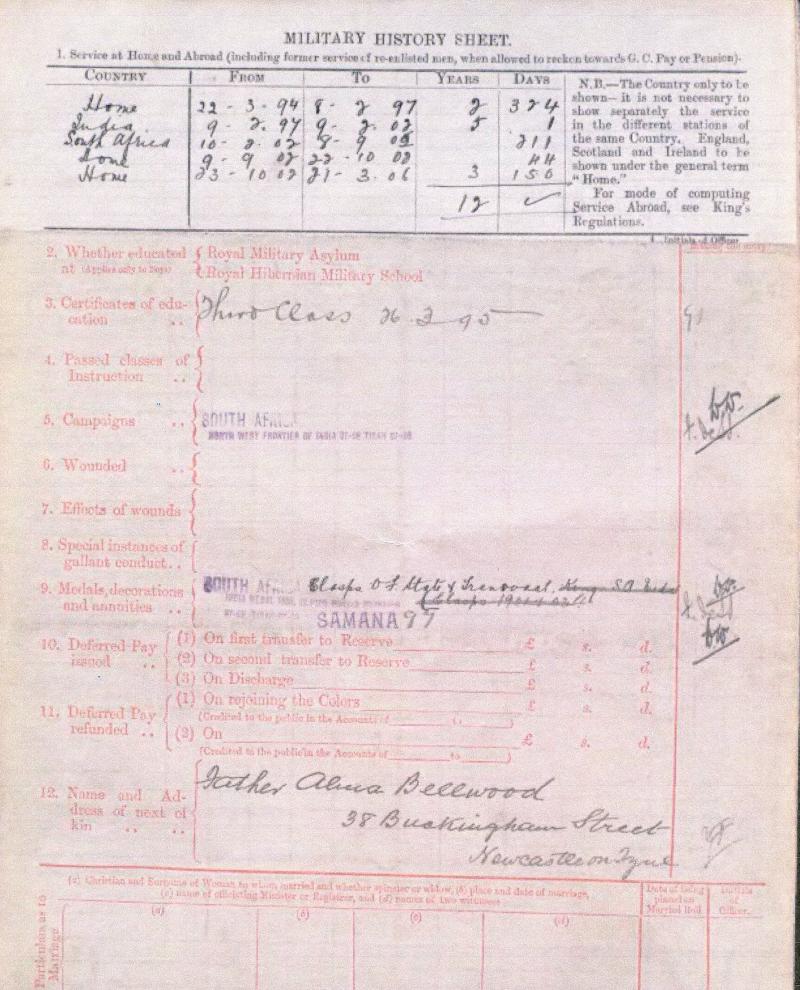 MILITARY HISTORY SHEET.
1. Service at Home and Abroad (including former service of re-enlisted men, when allowed to reckon towards G. C. Pay or Pension).
COUNTRY FROM TO YEARS DAYS
Home 22 - 3 - 94 8 - 2 97 2 324
India 9 - 2. 97 9 - 2. 02 5 1
South Africa 10 - 2. 02 8 - 9 02 211
9 - 9 02 22 - 10 02 44
Home 23 - 10 02 21 - 3. 06 3 150
12 ✓
N.B.—The Country only to be
shown—it is not necessary to
show separately the service
in the different stations of
the same Country. England,
Scotland and Ireland to be
shown under the general term
"Home."
For mode of computing
Service Abroad, see King's
Regulations.
Initials of Officer
2. Whether educated at (Applies only to Boys)
Royal Military Asylum
Royal Hibernian Military School
3. Certificates of edu-
cation ..
Third Class 95
4. Passed classes of
Instruction ..
5. Campaigns ..
SOUTH AFRICA
NORTH WEST FRONTIER OF INDIA 97-98 TIRAH 97-98
6. Wounded ..
7. Effects of wounds
8. Special instances of
gallant conduct..
9. Medals, decorations
and annuities ..
SOUTH AFRICA Clasps O F State & Transvaal.
SAMANA 97
10. Deferred Pay
issued ..
(1) On first transfer to Reserve £ s. d.
(2) On second transfer to Reserve £ s. d.
(3) On Discharge £ s. d.
11. Deferred Pay
refunded ..
(1) On rejoining the Colors £ s. d.
(Credited to the public in the Accounts of )
(2) On £ s. d.
(Credited to the public in the Accounts of to )
12. Name and Ad-
dress of next of
kin .. ..
Father Bellwood
38 Buckingham Street
Newcastle on Tyne
Particulars as to
Marriage.
(a) Christian and Surname of Woman to whom married and whether spinster or widow, (b) place and date of marriage,
(c) name of officiating Minister or Registrar, and (d) names of two witnesses
Date of being
placed on
Married Roll
Initials
of
Officer.
(a) (b) (c) (d)